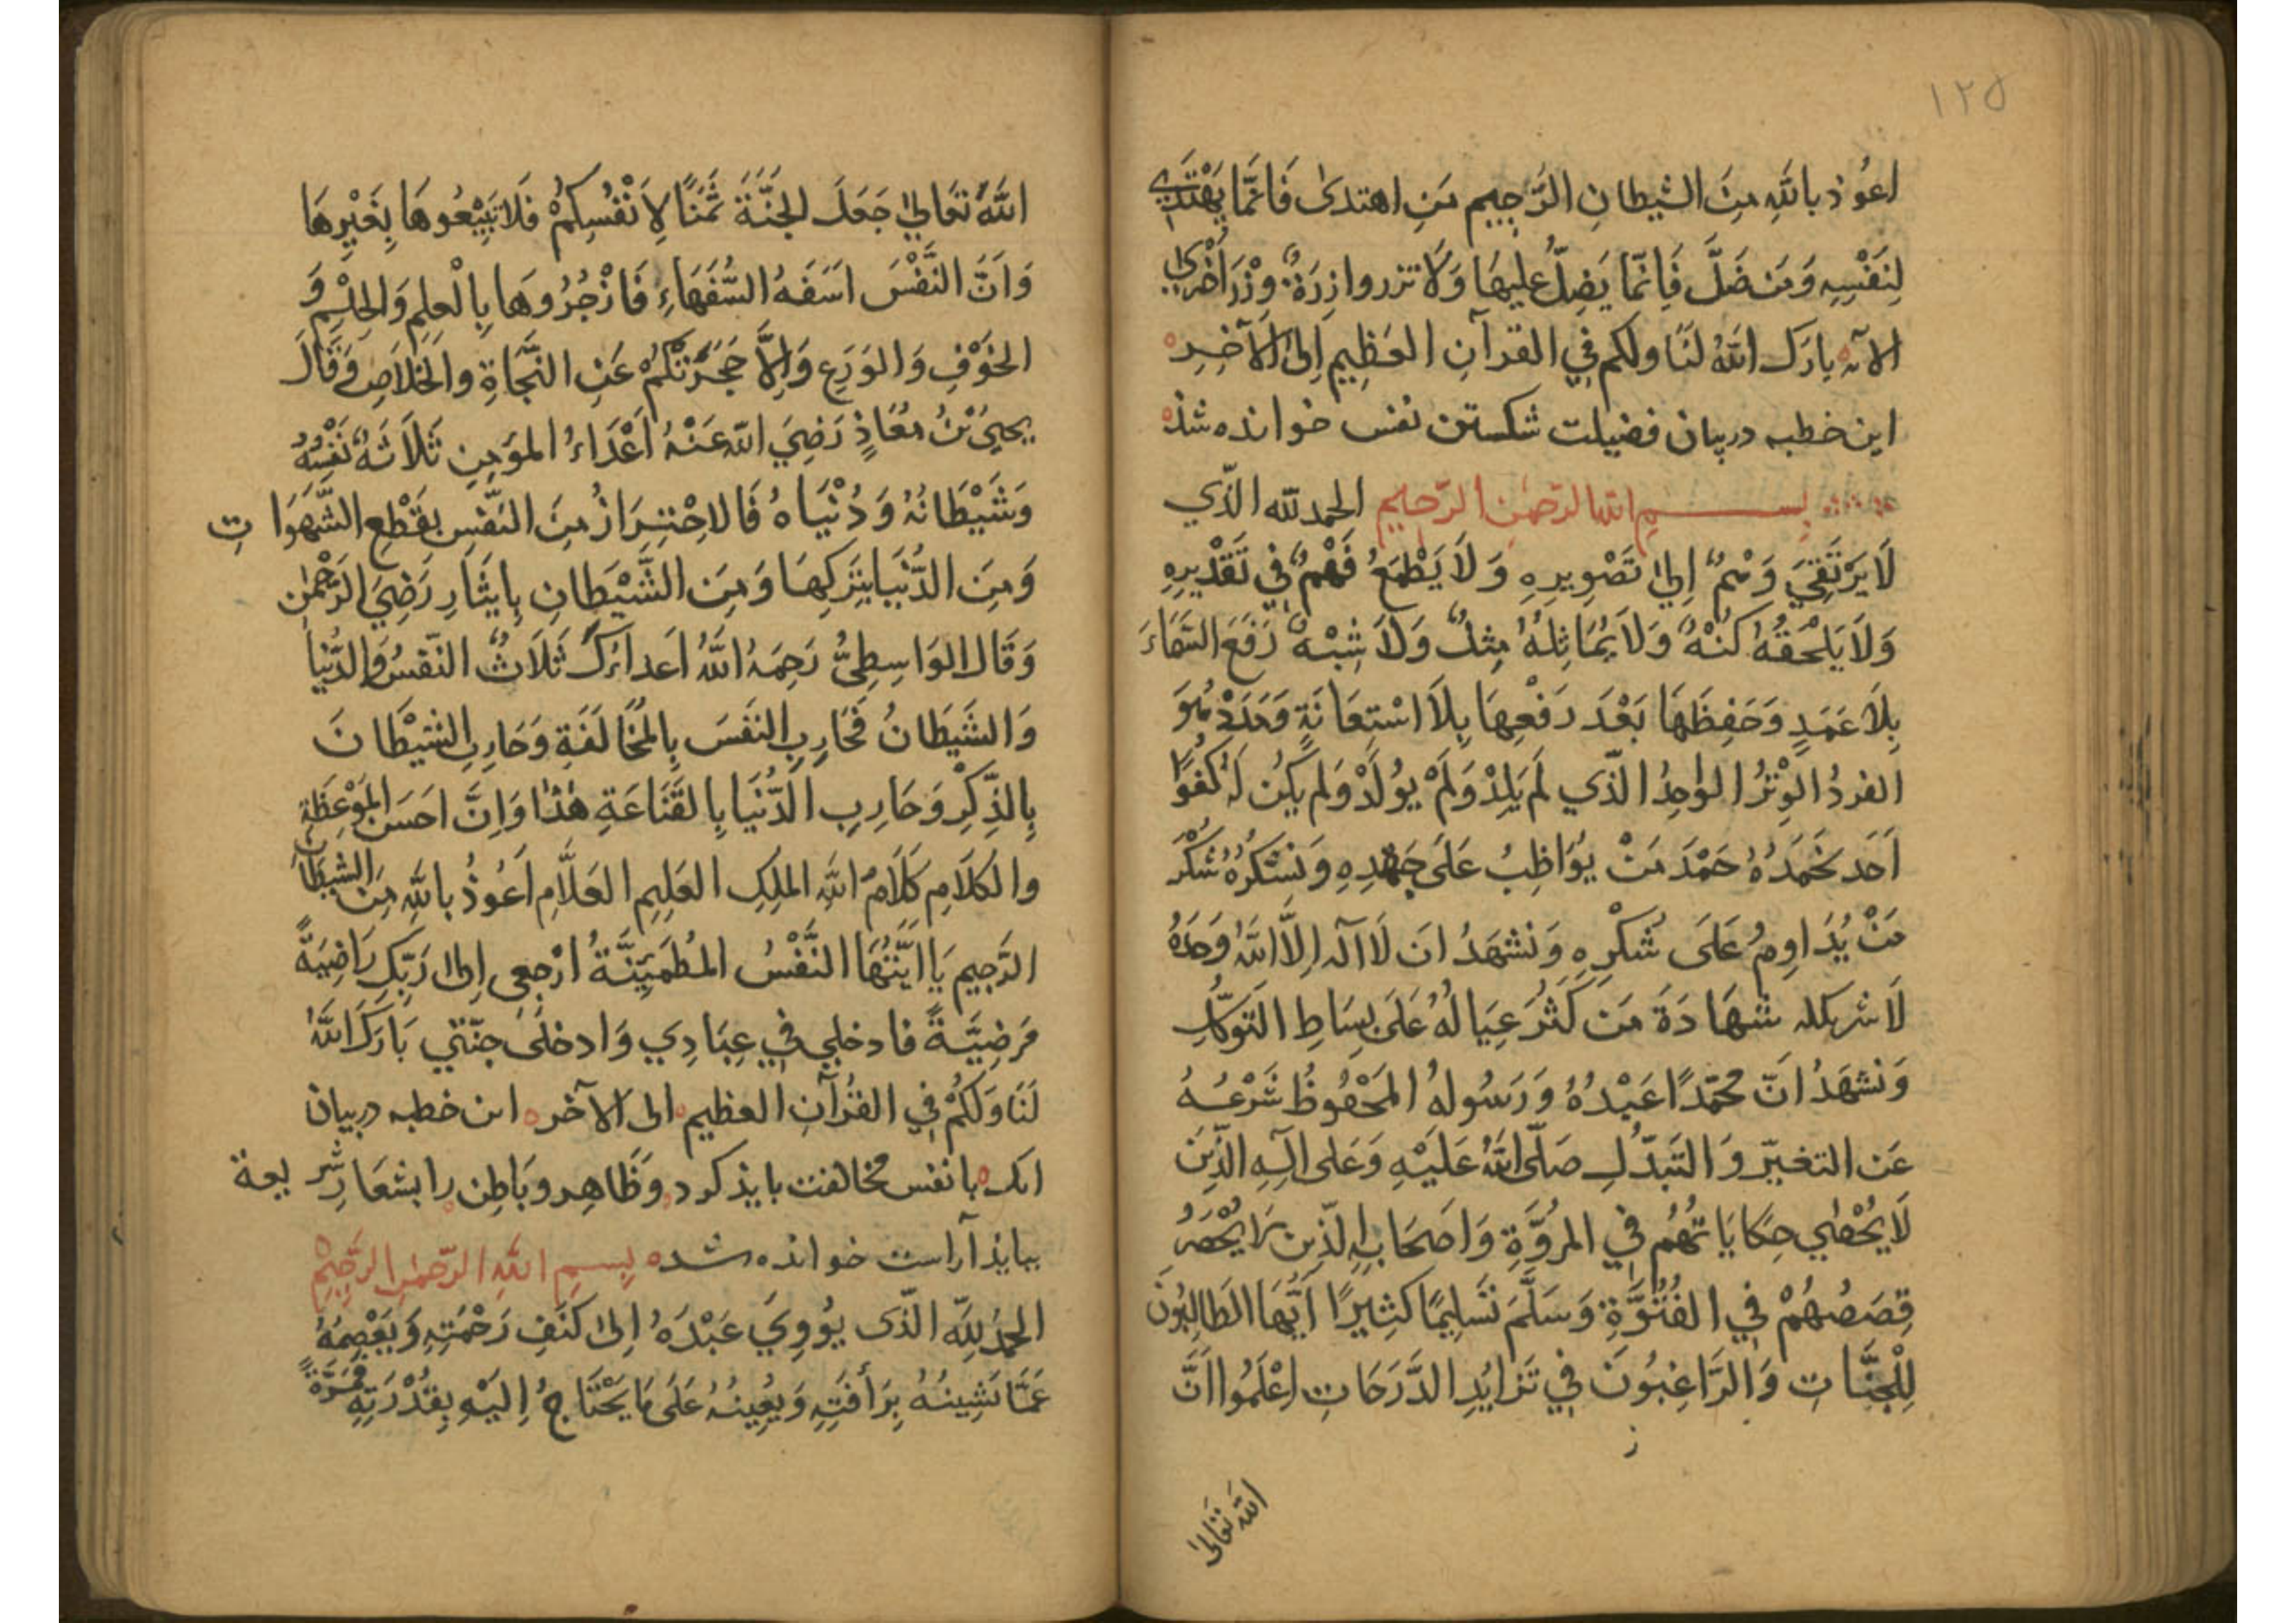 ١٢٥
اعُوذ بالله مِنَ الشيطانِ الرَّجِيمِ مَنِ اهتدىٰ فَاِنَّمَا يَهْتَدِي
لِنَفْسِهِ وَمَنْ ضَلَّ فَاِنَّمَا يَضِلُّ عليهَا وَلَا تزر وازِرَةٌ وِزْرَ اُخْرٰي
الآيه بارَكَ اللهُ لَنَا ولكم فِي القرآنِ العَظِيمِ اِلىٰ الآخِرِ
اين خطبه دربيان فضيلت شكستن نفس خوانده شذ
بســـــمِ الله الرّحمٰنِ الرّحيمِ الحمد لله الذّي
لَا يَرْتَقِيَ وَهْمٌ اِليٰ تَصْوِيرِهِ وَلَا يَطْمَعُ فَهْمٌ فِي تَقْدِيرِهِ
وَلَا يَلْحَقُهُ كُنْهٌ وَلَا يُمَاثِلُهُ مِثلٌ وَلَا شِبْهٌ رَفَعَ السَّمَاءَ
بِلَا عَمَدٍ وَحَفِظَهَا بَعْدَ رَفْعِهَا بِلَا اسْتِعَانَةِ وَمَدَدْ هُوَ
الفردُ الْوِتْرُ الوٰاحِدُ الذّي لَمْ يَلِدْ وَلَمْ يُولَدْ وَلم يكُن لَهُ كُفوًا
اَحَد نَحْمَدُهُ حَمْدَ مَنْ يُوَاظِبُ عَلَى جَهْدِهِ وَنَشكُرُهُ شُكْرَ
مَنْ يُدَاوِمُ عَلَى شُكْرِهِ وَنَشهَدُ انَ لَا آله اِلاَّ اللهُ وَحدَهُ
لَا شريكله شهَادَةَ مَن كَثُرَ عِيَالُهُ عَلَى بِسَاطِ التَوكّلِ
وَنشهَدُ انَّ محمّدًا عَبْدُهُ وَرَسُولهُ المَحْفُوظُ شَرْعُهُ
عَن التغيّرِ وَالتَّبَدّلِ صَلّى اللهُ عَلَيْهِ وَعَلى آلِهِ الذّينَ
لَا يُحْصٰي حِكَايَاتُهُم فِي المرُوَّةِ وَاَصحَابِهِ الذّينَ لَا يُحْصَرُ
قِصَصُهُمْ فِي الفُتُوَّةِ وَسَلَّمَ تَسْلِيمًا كَثِيرًا اَيُّهَا الطَالِبُونَ
لِلْجَنَّاتِ وَالرَّاغِبُونَ فِي تَزايُدِ الدَّرَجَاتِ اعْلَمُوا اَنَّ
الله تعَالىٰ
اللهَ تعَاليٰ جَعَلَ الجَنَّةَ ثَمَنًا لِاَنْفُسِكُمْ فَلا تَبِيْعُوهَا بِغَيْرِهَا
وَاَنَّ النَّفْسَ اَسَفَهُ السُّفَهَاءِ فَازْجُرُوهَا بِالْعلمِ وَالحِلْمِ وَ
الخَوْفِ وَالوَرَعِ وَاِلَّا حَجَزَتْكُمْ عَنِ النَّجَاةِ والخَلاَصِ وَقَالَ
يحييَ بْنُ مُعَاذٍ رَضِيَ اللهُ عَنْهُ اَعْدَاءُ المؤمِنِ ثَلَاثَهٌ نَفْسُهُ
وَشَيْطَانُهُ وَدُنْيَاهُ فَالاحْتِرَازُ مِنَ النَفْسِ بقَطْعِ الشَّهَوَاتِ
وَمِنَ الدُّنْيَا بِتَركِهَا وَمِنَ الشَّيْطَانِ بِايثَارِ رَضِيَ الرَّحْمٰنِ
وَقَالَ الوَاسِطِيُّ رَحِمَهُ اللهُ اَعداءُكَ ثَلَاثٌ النّفسُ وَالدُّنيَا
وَالشَيَطَانُ فَحَارِبِ النفَسَ بِالمُخَالَفَةِ وَحَارِبِ الشيْطَانَ
بِالذِّكْرِ وَحَارِبِ الدُّنْيَا بِالقَنَاعَةِ هٰذَا وَاِنَّ اَحسَنَ المَوْعِظَةِ
والكَلَامِ كَلَامُ اللهِ المَلِكِ العَلِيمِ العَلاَّمِ اَعُوذُ باللهِ مِنَ الشيطَانِ
الرَّجِيمِ يَا اَيَّتُهَا النَّفْسُ المُطْمَئِنَّةُ ارْجِعى اِلىٰ رَبِّكِ رَاضِيَةً
مَرضِيَّةً فادخلِي فِي عِبَادِي وَادخلىٰ جنّتي بَارَكَ اللهُ
لَنَا وَلَكُمْ فِي القُرْآنِ العظيمِ الى الآخر اىن خطبه دربيان
انك با نفس مخالفت بايذ كرد وَظَاهِر وبَاطِن را بشعَارِ شريعة
ببايذ آراست خوانده شده بِسمِ اللهِ الرّحمٰنِ الرَّحِيمِ
الحَمدُ لِلّهِ الذّى يُؤوِيَ عَبْدَهُ اِلىٰ كَنَفِ رَحْمَتِهِ وَيَعْصِمُهُ
عَمَّا يَشِينُهُ بِرَأفَتِهِ وَيُعِينُهُ عَلَى مَا يَحْتَاجُ اِليْهِ بِقُدْرَتِهِ